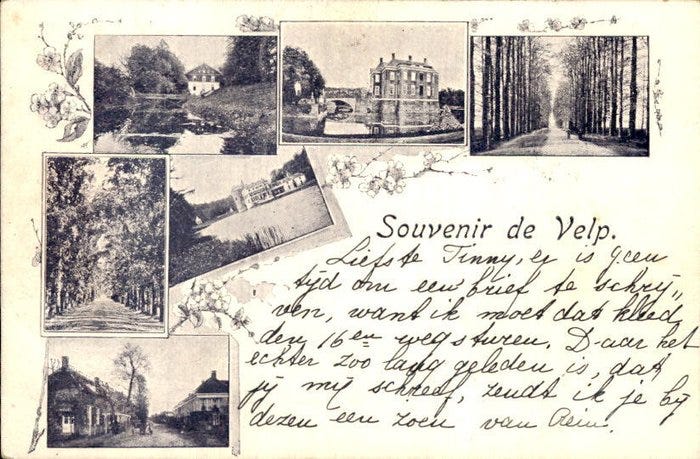 Souvenir de Velp.
Liefste Tinny, er is geen
tijd om een brief te schrij„
ven, want ik moet dat kleed
den 16en wegsturen. Daar het
echter zoo lang geleden is, dat
jij mij schreef, zendt ik je bij
dezen een zoen van Rein.